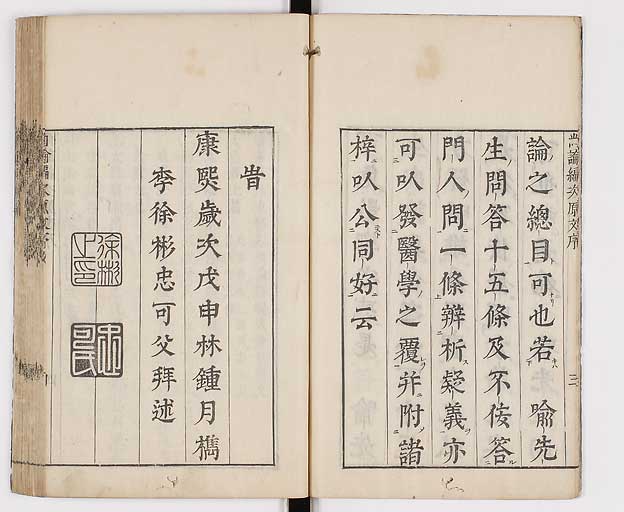 尚論編次原文序
三
論之總目可也若喻先
生問答十五條及不佞答
門人問一條辨析疑義亦
可㕥發醫學之覆并附諸
梓㕥公同好云
旹
康熙歲次戊申林鍾月檇
李徐彬忠可父拜述
徐彬之印